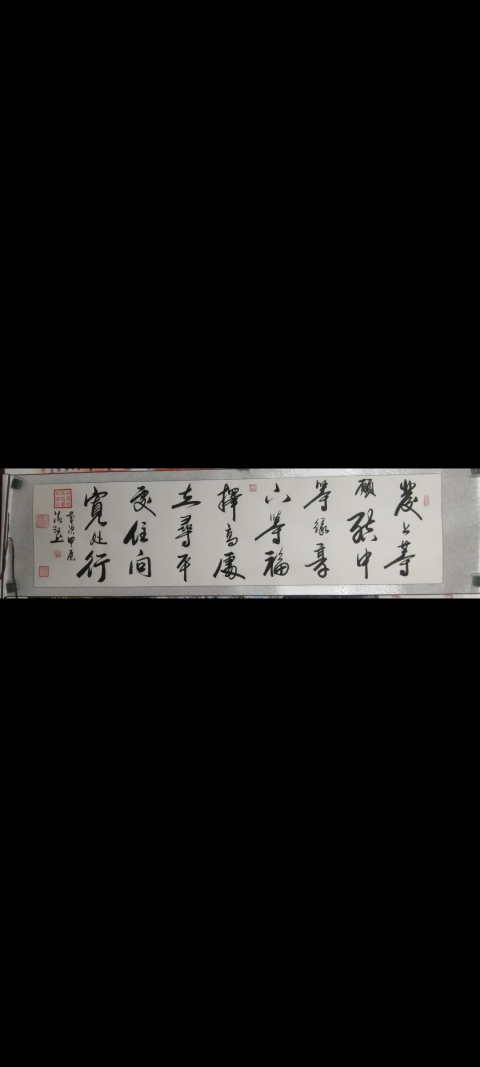 發上等
願結中
等緣享
下等福
擇高處
立尋平
處住向
寬处行